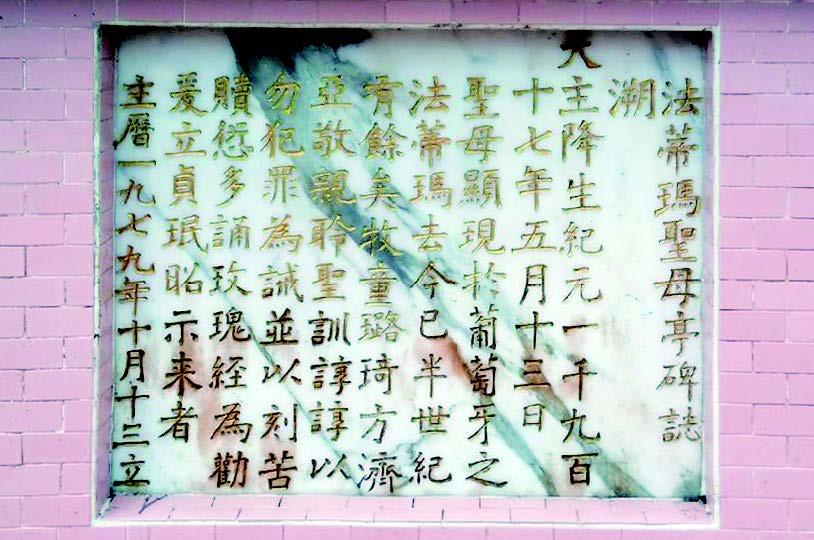 法蒂瑪聖母亭碑誌
溯
天主降生紀元一千九百
十七年五月十三日
聖母顯現於葡萄牙之
法蒂瑪去今已半世紀
有餘矣牧童璐琦方濟
亞敬親聆聖訓諄諄以
勿犯罪為誡並以刻苦
贖愆多誦玫瑰経為勸
爰立貞珉昭示来者
主曆一九七九年十月十三立